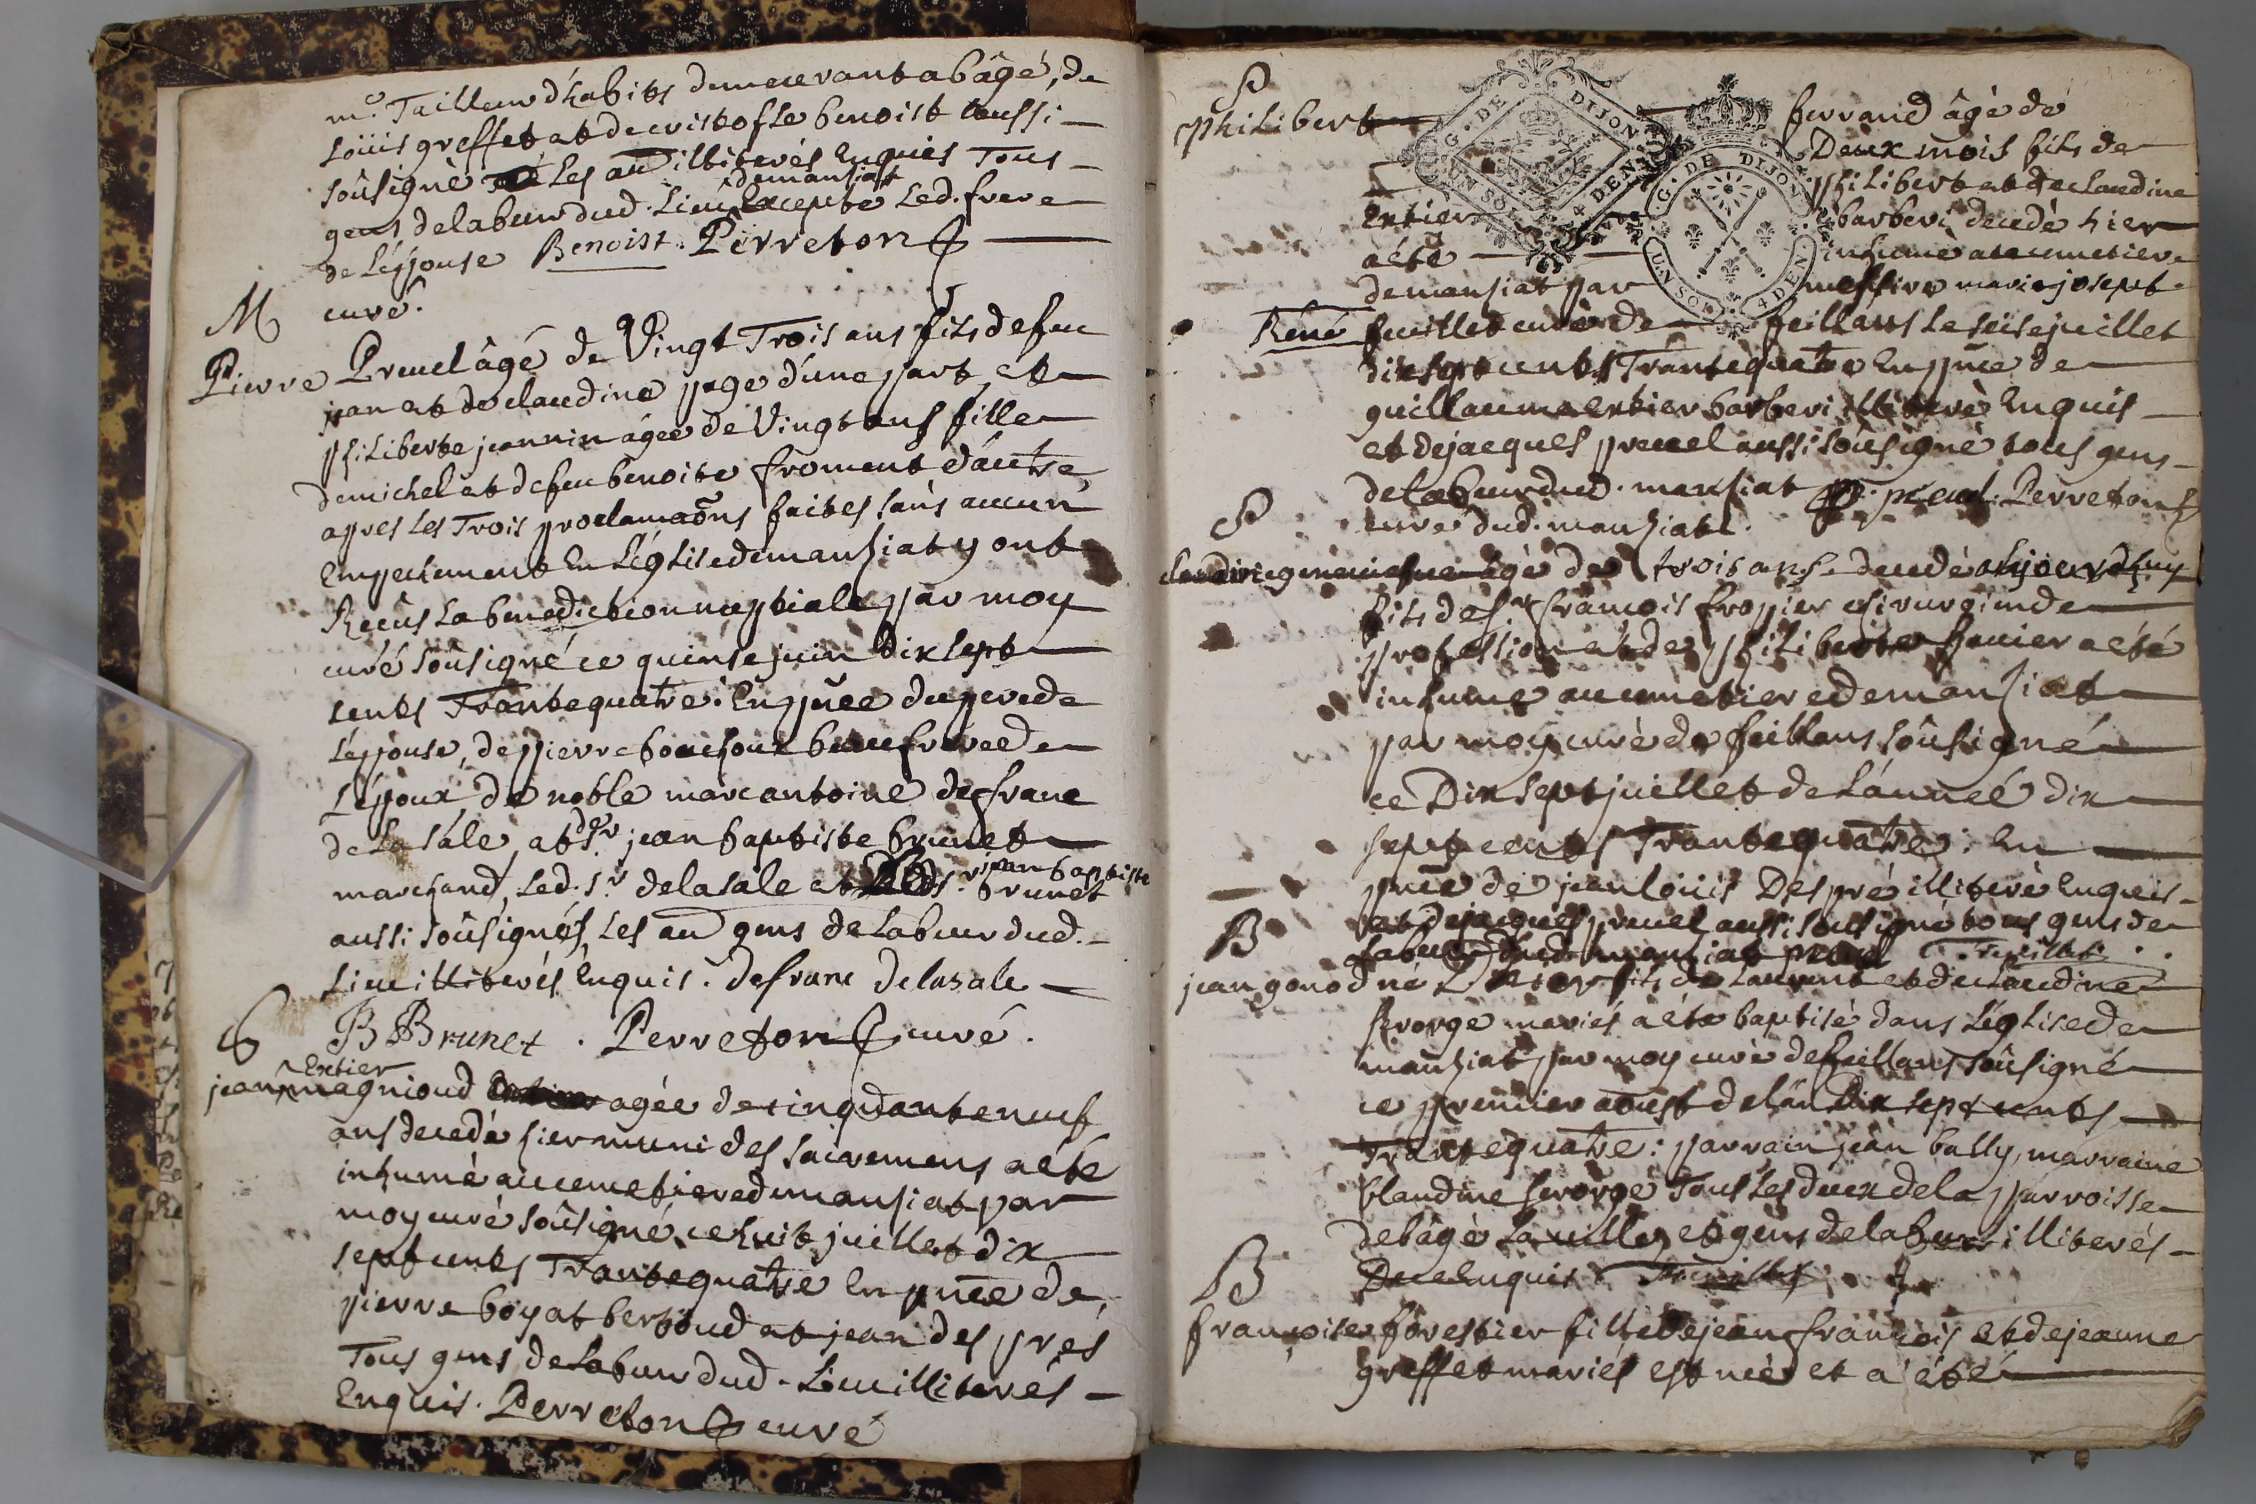 me. Tailleur d'habits demeurant a bâgé, de
Loüis greffet et de cristofle benoist aussi
soûsigné les au illiterés enquis Tous
demansiat
gens de labeur dud. Lieu excepte led. frere
de l'épouse Benoist. Perreton
curé.
M
Pierre Preuel âgé de Vingt Trois ans fils de feu
jean et de claudine page d'une part, et
philiberte jeannin âgée de Vingt ans fille
de michel et de feu benoite froment d'autre
apres les Trois proclamaõns faites sans aucun
empechement en l'église demansiat y ont
Receûs la benediction nuptiale par moy
curé soûsigné ce quinse juin dix sept
cents Trante quatre. en pñce du pere de
l'épouse, de pierre bouchoux beaufrere de
l'époux de noble marc antoine de franc
de la sâle, et de sr. jean baptiste brunet
marchand, led. sr. de la sale et led. sr. jean baptiste brunet
aussi soûsignés, les au gens de labeur dud.
Lieu illiterés enquis. defranc delasale
B Brunet . Perreton curé.
S
Extier
jean magnioud agée de cinquante neuf
ans decedé hier muni des sacremens a été
inhumé au cemetiere demansiat par
moy curé soûsigné, ce huit juillet dix
sept cents Trante quatre en pñce de,
pierre boyat bertoud et jean des prés
Tous gens de labeur dud. Lieu illiterés
enquis. Perreton curé
S
philibert ferraud âgé de
Deux mois fils de
philibert et de claudine
Extier barberi decedé hier
a été inhumé a ce cemetiere
demansiat par messire marie josept
René feuillet curé de feillans le seise juillet
dix sept cents Trante quatre en pñce de
guillaume extier barberi illiteré enquis
et de jacques preuel aussi soûsigné tous gens
de labeur dud. mansiat p. preuel. Perreton
curé dud. mansiat.
S
âgé de trois ans decedé aujourdhuy
fils de sr. francois froppier chirurgien de
profession et de philiberte a été
inhumé au cemetiere demansiat
par moy curé de feillans soûsigné
ce Dix sept juillet de l'année dix
sept cents Trante quatre. En
pñce de jean loüis Despré illiteré enquis
et de jacques preuel aussi soûsigné tous gens de
labeur dud. mansiat preuel feuillet
B
jean gonod né hier fils de laurent et de claudine
ferorge mariés a été baptisé dans l'église de
mansiat par moy curé de feillans soûsigné
ce premier aoust de l'an Dix sept cents
Trante quatre: parrain jean bally, marraine
claudine ferorge Tous les deux de la parroisse
de bâgé la ville, et gens de labeur illiterés
De ce enquis feuillet
B
françoise forestier fille de jean françois et de jeanne
greffet mariés est née et a été
G. DE DIJON
UN SOL 4 DEN
G. DE DIJON
UN SOL 4 DEN